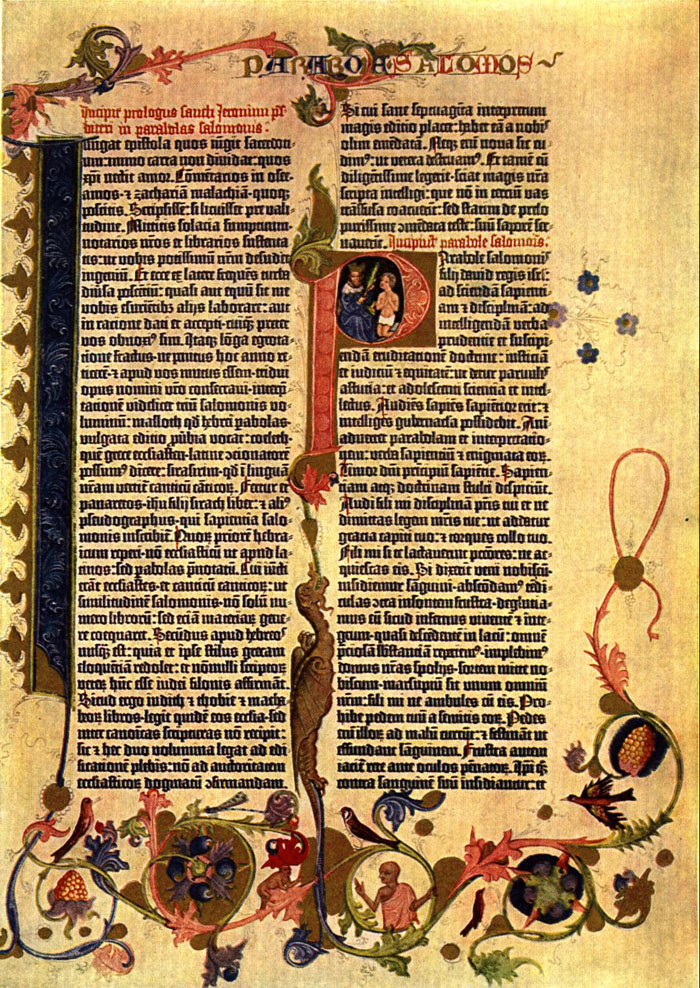 PARABOLE SALOMONIS
Incipit prologus sancti Jeronimi p̄s
biteri in parabolas salomonis:
Iungat epistola quos iūgit sacerdoti
um: immo carta non diuidat: quos
xp̄i nectit amor. Cōmētarios in osee.
amos. ⁊ zachariam malachiā. quoq̄
poscitis. Scripsissē: si licuisset pre vali-
tudine. Mittitis solacia sumptuum.
notarios nr̄os et librarios sustenta-
tis: ut vobis potissimū nr̄m desudet
ingeniū. Et ecce ex latere frequēs turba
diuīsa poscentiū: quasi aut equū sit me
vobis esurientibꝰ alijs laborare: aut
in racione dati et accepti. cuiq̄ preter
vos obnoxiꝰ sim. Itaq̄ lōga egrota-
tione fractus. ne penitus hoc anno re-
ticerē ⁊ apud vos mutus essem. tridui
opus nomini vr̄o consecraui. interp̄-
tatione videlicet triū salomonis vo-
luminū: masloth qd̄ hebrei pabolas.
vulgata editio pūbia vocat: coeleth.
quē grece ecclīasten. latine ꝯcionatorē
possumꝰ dicere: sirasirim. qd̄ ī linguā
nr̄am vertit canticū cāticoꝝ. Fertur et
panaretos. ihu filij sirach liber: ⁊ aliꝰ
pseudographus. qui sapientia salo-
monis inscribit. Quoꝝ priorē hebra-
icum reperi. nō ecclīasticū ut apud la-
tinos: sed pabolas p̄notatū. Cui iūcti
erāt ecclīastes. et canticū canticoꝝ: ut
similitudinē salomonis. nō solū nu-
mero librorū: sed etiā materiaꝝ gene-
re coequaret. Secūdus apud hebreos
nusq̄ est: quia et ipse stilus grecam
eloquētiā redolet: et nōnulli scriptoꝝ
veteꝝ hūc esse iudei filonis affirmāt.
Sicud ergo iudith ⁊ thobie ⁊ macha-
beoꝝ libros. legit quidē eos ecclīa. sed
inter canoīcas scripturas nō recipit:
sic ⁊ hec duo volumina legat ad edi-
ficationē plebis: nō ad auctoritatem
ecclesiasticoꝝ dogmatū ꝯfirmandam.
Si cui sane septuagīta interpretum
magis editio placet: habet eā a nobis
olim emēdatā. Neq̄ enī noua sic cu-
dimꝰ: ut vetera destruamꝰ. Et tamē cū
diligētissime legerit. sciat magis nr̄a
scripta intelligi: que nō in terciū vas
trāsfusa coacuerit: sed statim de prelo
purissime ꝯmēdata teste: suū saporē ser-
uauerit. Incipiūt parabole salomonis.
Parabole salomonis
filij dauid regis isrl̄:
ad sciendā sapienti-
am ⁊ disciplinā: ad
intelligendā verba
prudentie et suscipi-
endā eruditationē doctrine: iusticiā
et iudiciū ⁊ equitatē: ut detur paruulis
astutia: et adolescenti scientia et intel-
lectus. Audiēs sapiēs sapientior erit: ⁊
intelligēs gubernacla possidebit. Ani-
aduertet parabolam et interpretatio-
nem: verba sapientiū ⁊ enigmata eoꝝ.
Timor dn̄i principiū sapientie. Sapien-
tiam atq̄ doctrinam stulti despiciūt.
Audi fili mi disciplinā pr̄is tui et ne
dimittas legem mr̄is tue: ut addatur
gracia capiti tuo: ⁊ torques collo tuo.
Fili mi si te lactauerint pctōres: ne ac-
quiescas eis. Si dixerīt veni nobiscū.
insidiemur sāguini. abscōdamꝰ tēdi-
culas ꝯtra insontem frustra. deglutia-
mus eū sicud infernus viuentē ⁊ inte-
grum. quasi descēdentē in lacū: omnē
p̄ciosā substātiā reperiemꝰ. implebimꝰ
domus nr̄as spolijs. sortem mitte no-
biscum. marsupiū sit unum omniū
nr̄m: fili mi ne ambules cū eis. Pro-
hibe pedem tuū a semitis eoꝝ. Pedes
enī illoꝝ ad malū currūt: ⁊ festināt ut
effundant sāguinem. Frustra autem
iacit̄ rete ante oculos pēnatoꝝ. Ipi q̄
contra sanguinē suū insidiantur: et